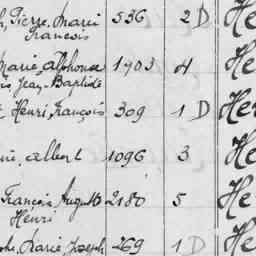 Pierre, Marie 536 2 D He
François
Marie, Alphonse 1903 4 He
Jean-Baptiste
Henri, François 309 1 D He
Albert 1096 3 He
François, Auguste 2180 5 He
Henri
Marie, Joseph 269 1 D He